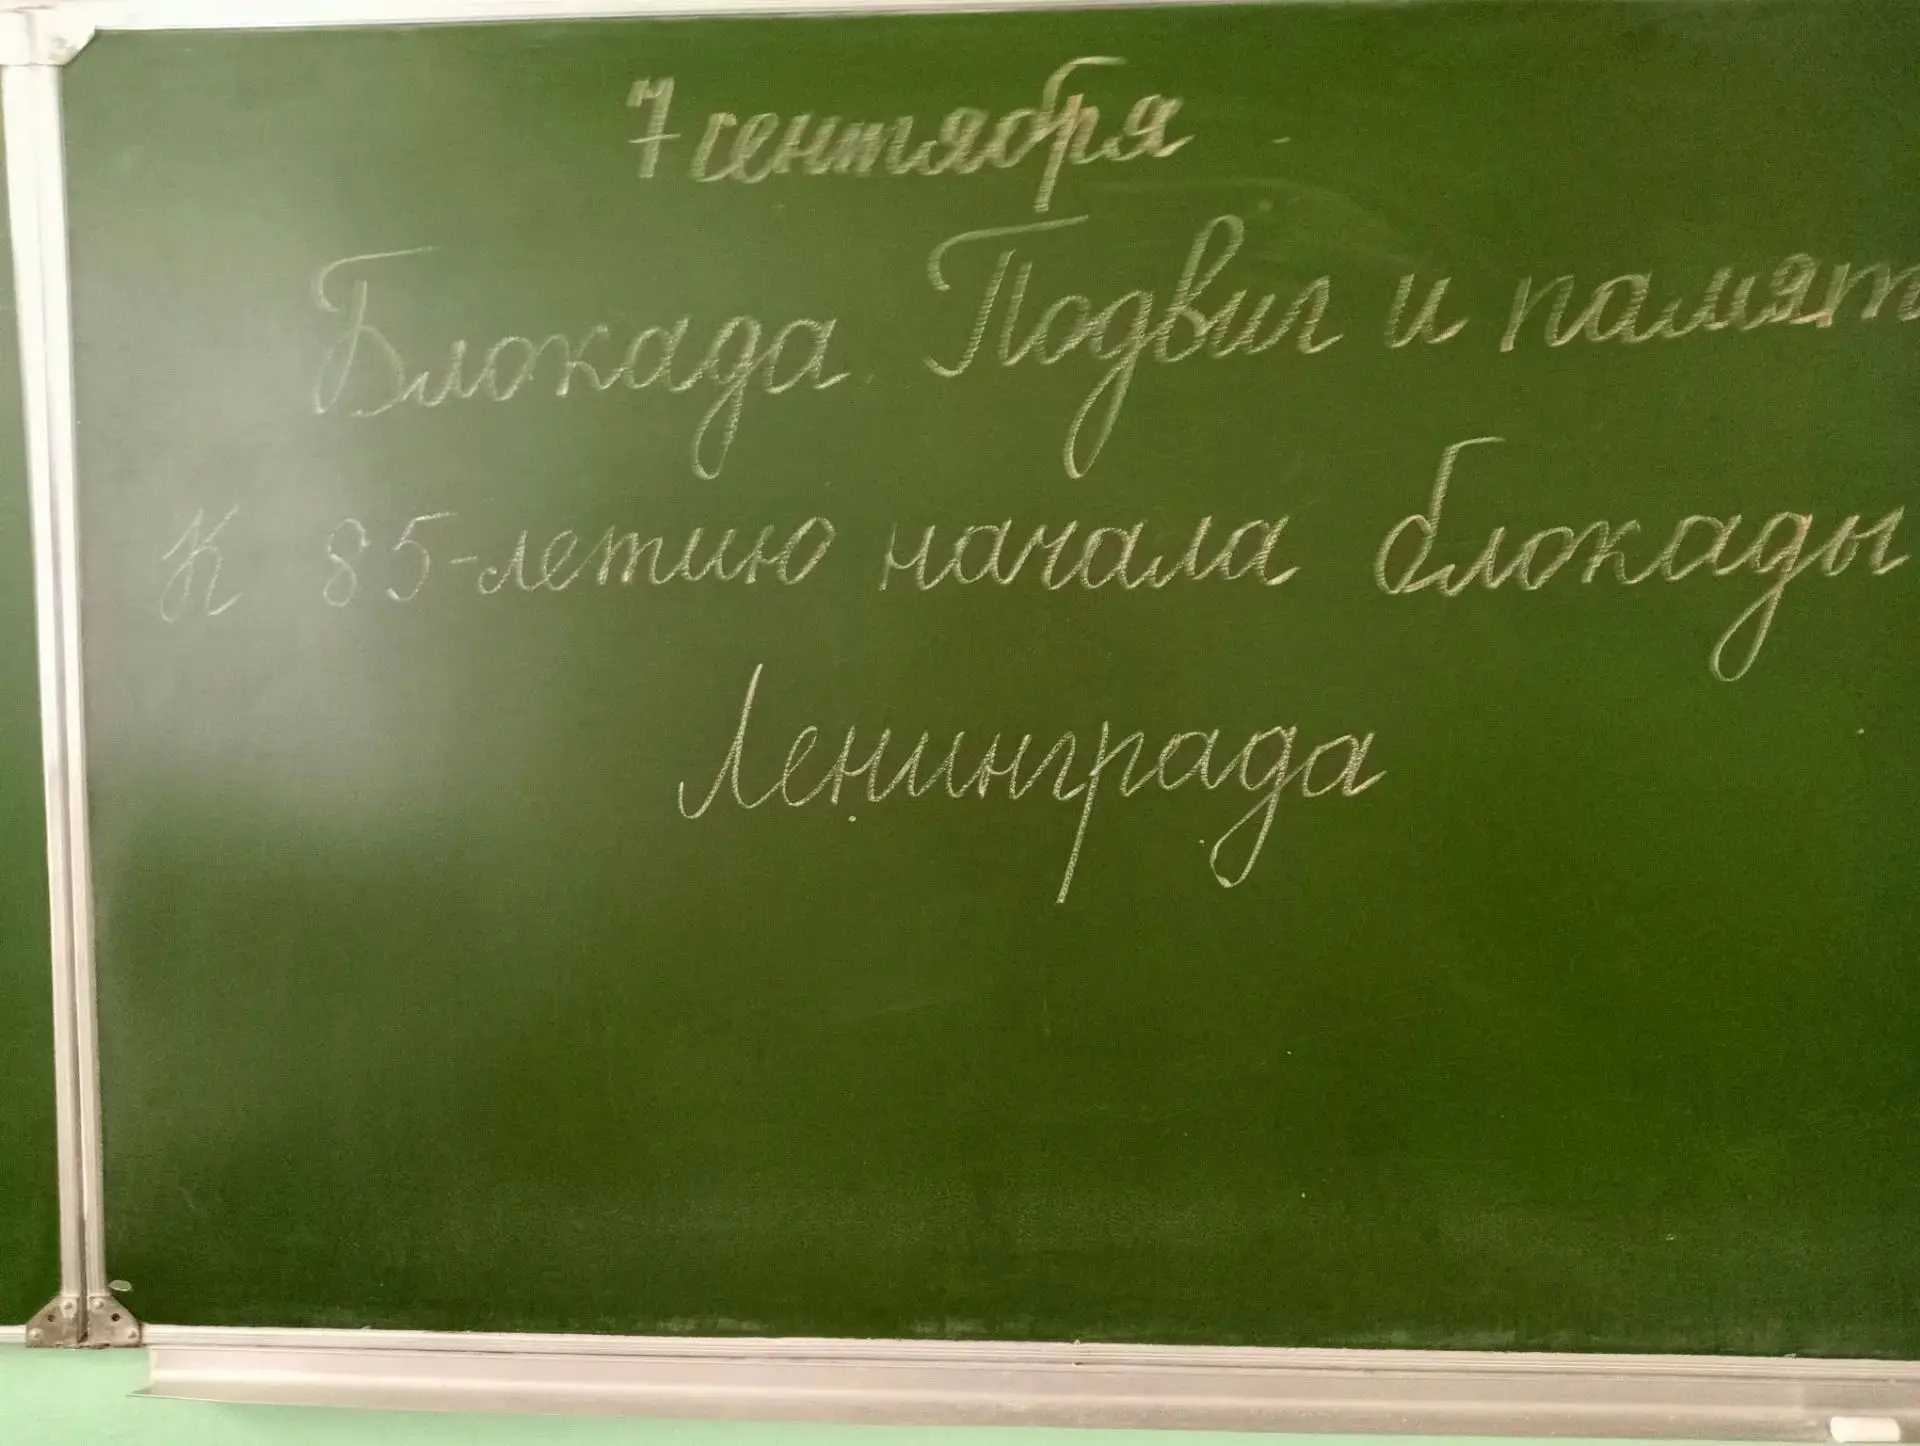 7 сентября
Блокада. Подвиг и памят
К 85-летию начала блокады
Ленинграда